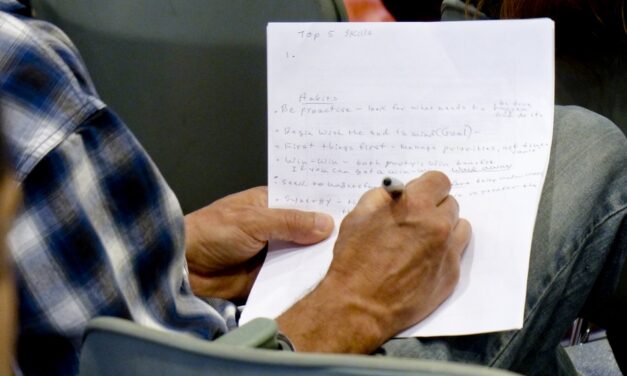 Top 5 Skills
1.
Habits
• Be proactive - look for what needs to be done
and do it.
• Begin with the end in mind (Goal) -
• First things first - manage priorities, not time
• Win-Win - both party's win
If you can get a win-win
• Seek to understand being understood
• Synergy -